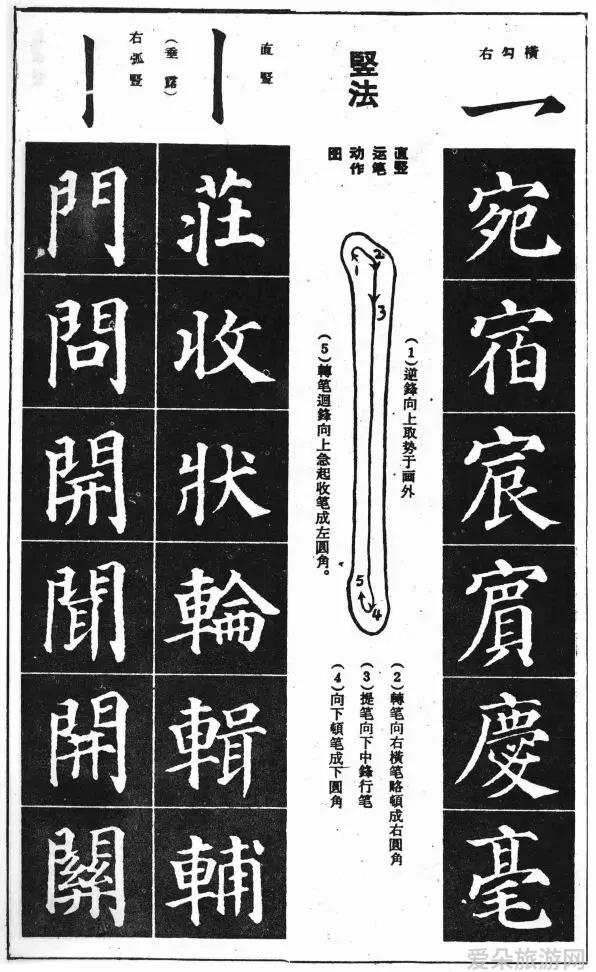 右勾橫
宛
宿
宸
賓
慶
毫
竪法
直竪
运笔
动作
图
1
2
3
4
5
(1)逆鋒向上取势于画外
(2)轉笔向右橫笔略頓成右圓角
(3)提笔向下中鋒行笔
(4)向下頓笔成下圓角
(5)轉笔迴鋒向上急起收笔成左圓角。
直竪
莊
收
狀
輪
輯
輔
(垂露)
右弧竪
門
問
開
聞
開
關
爱朵旅游网